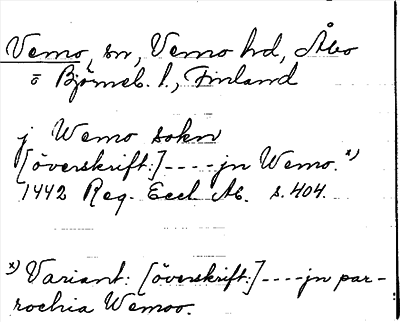 Vemo, sn, Vemo hd, Åbo
o Björneb. l., Finland
j Wemo sokn
[överskrift:]----jn Wemo.x)
1442 Reg. Eccl. Ab. s. 404.
x) Variant: [överskrift:]----jn par-
rochia Wemoo.